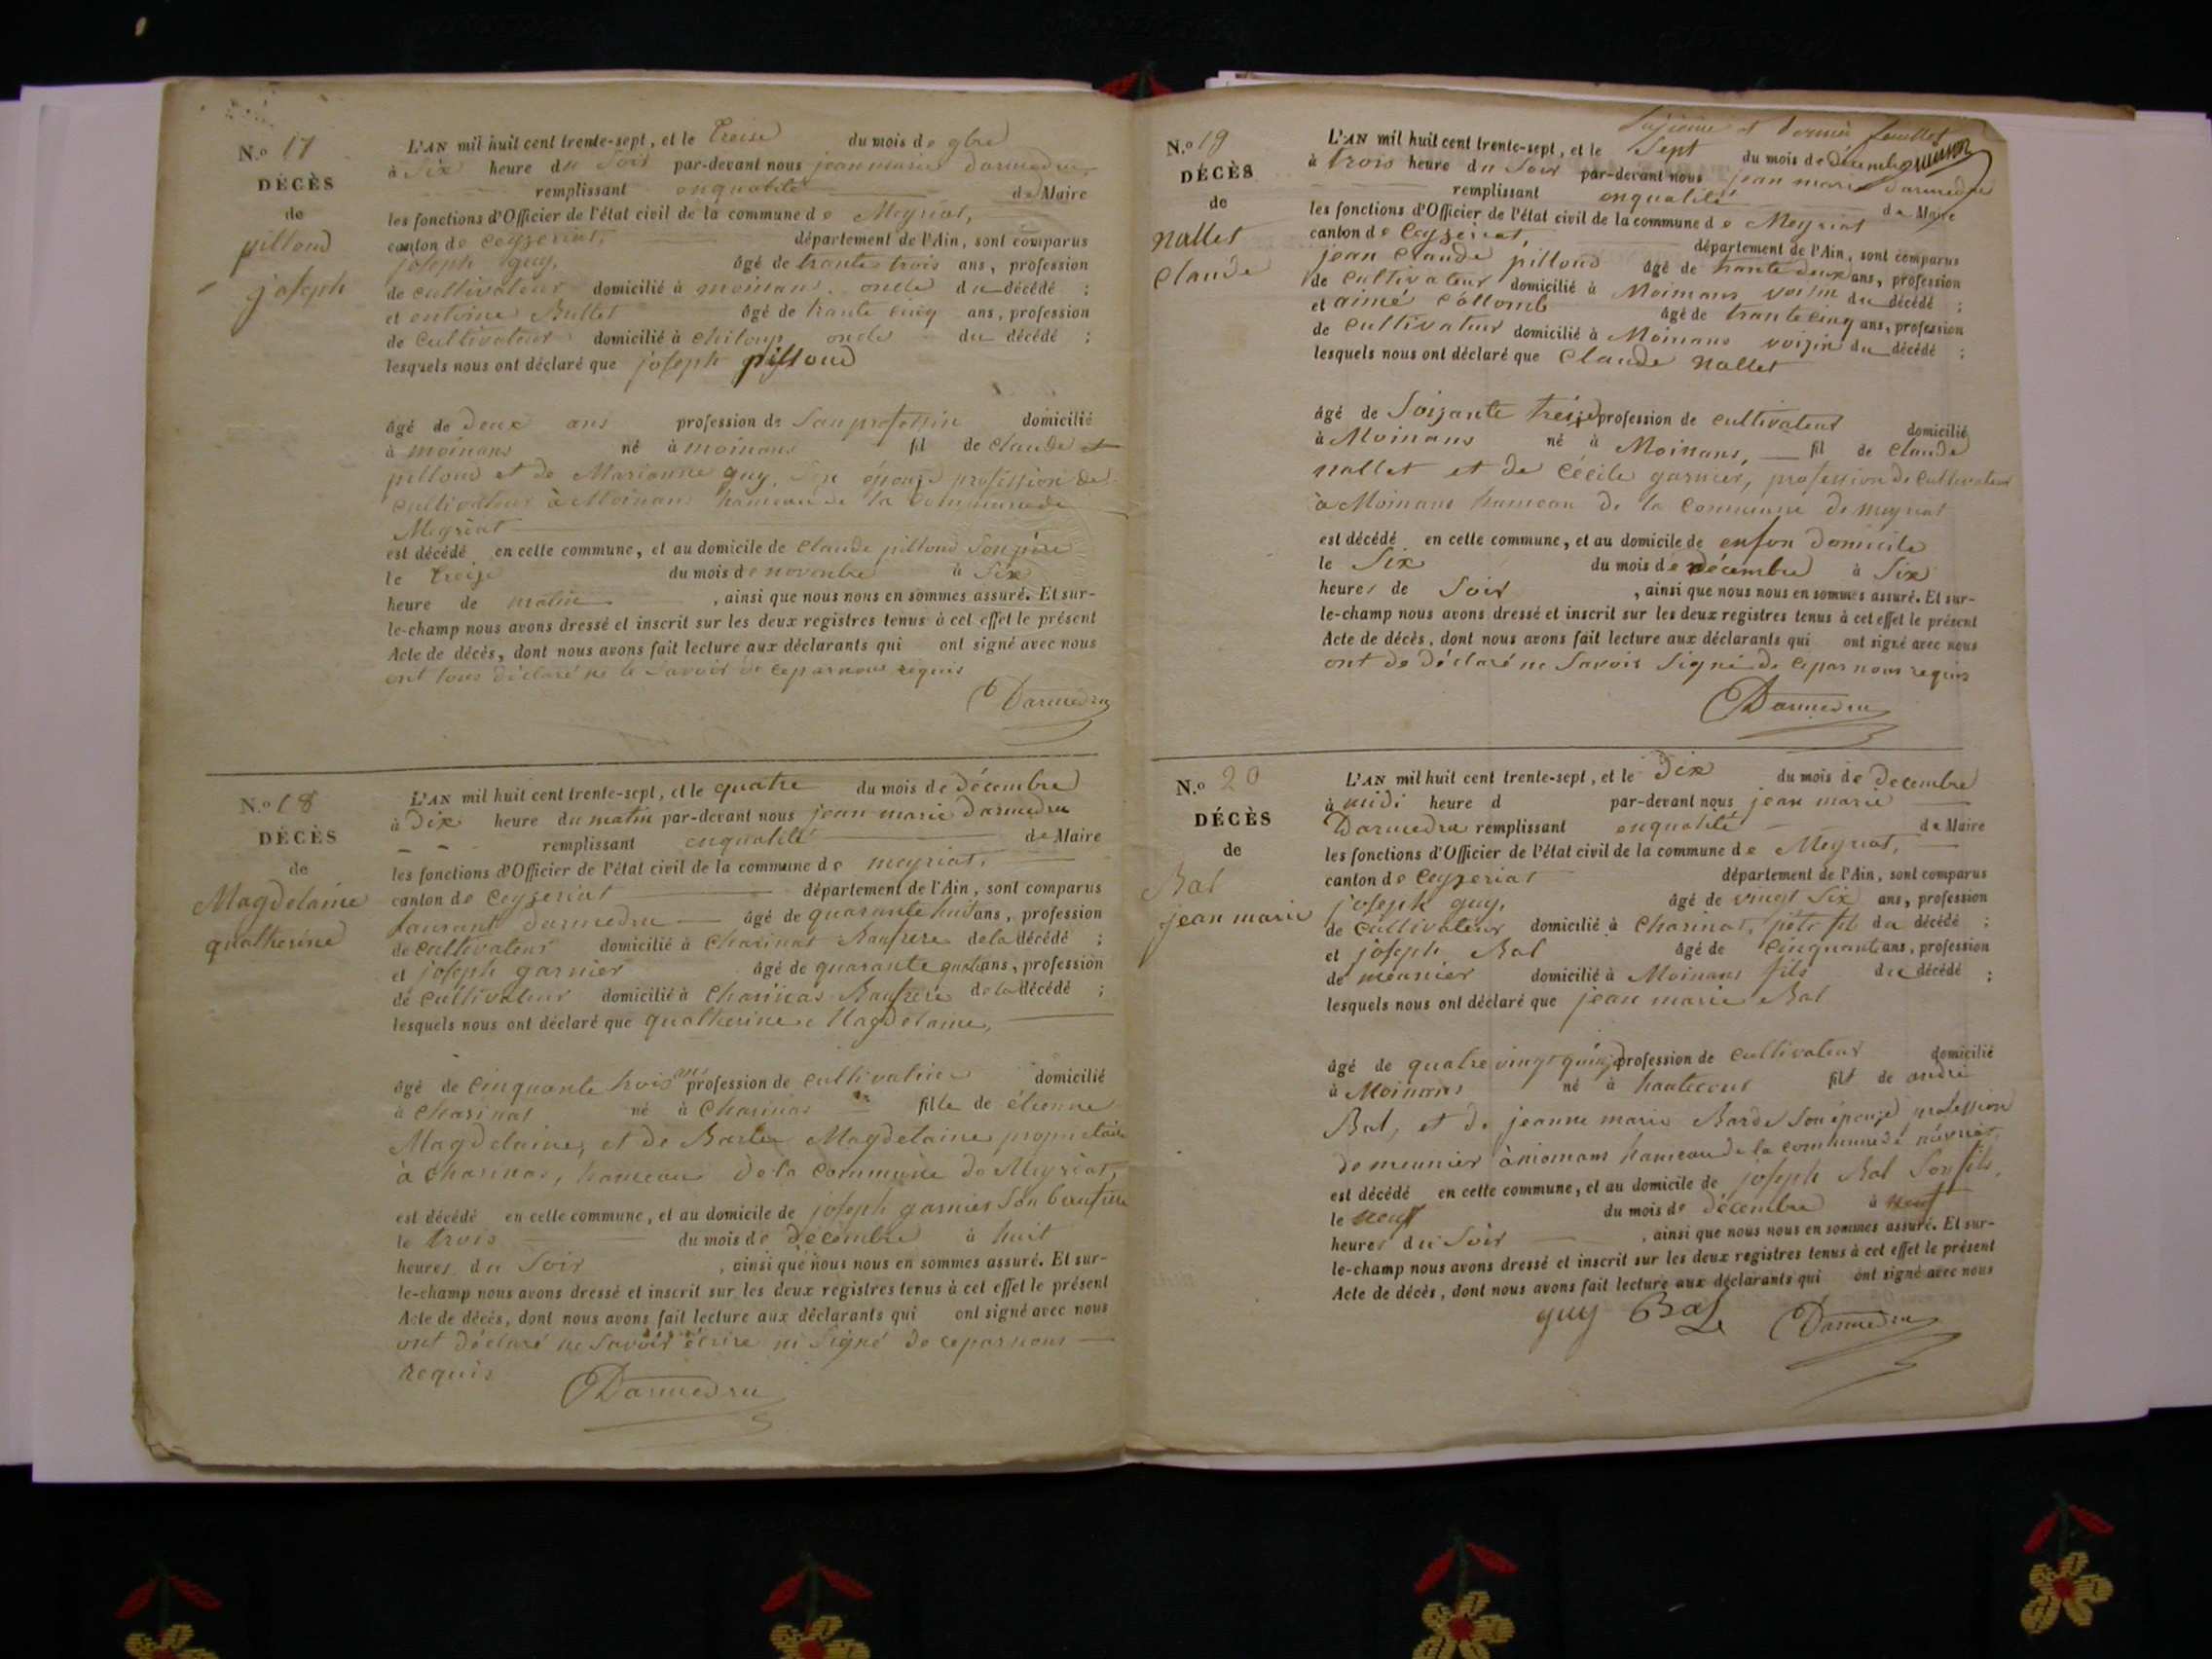 N.o 17
DÉCÈS
de
pilloud
joseph
L'AN mil huit cent trente-sept, et le treise du mois de 9bre
à Six heure du Soir par-devant nous jean marie darmedru
remplissant enqualité de Maire
les fonctions d'Officier de l'état civil de la commune de Meyriat,
canton de Ceyzeriat, département de l'Ain, sont comparus
joseph guy, âgé de trante trois ans, profession
de cultivateur domicilié à moinans, oncle du décédé ;
et antoine Bullet âgé de trante cinq ans, profession
de Cultivateur domicilié à chiloup oncle du décédé ;
lesquels nous ont déclaré que joseph pilloud
âgé de deux ans profession de San profession domicilié
à moinans né à moinans fil de claude et
pilloud et de Marianne guy, Son épouze profession de
cultivateur à Moinans hameau de la commune de
Meyriat
est décédé en cette commune, et au domicile de claude pilloud Son père
le treize du mois de novembre à Six
heure de matin , ainsi que nous nous en sommes assuré. Et sur-
le-champ nous avons dressé et inscrit sur les deux registres tenus à cet effet le présent
Acte de décès, dont nous avons fait lecture aux déclarants qui ont signé avec nous
ont tous déclaré ne le Savoir de ce par nous requis
Darmedru
N.o 18
DÉCÈS
de
Magdelaine
quatherine
L'AN mil huit cent trente-sept, et le quatre du mois de décembre
à Dix heure du matin par-devant nous jean marie darmedru
remplissant enqualité de Maire
les fonctions d'Officier de l'état civil de la commune de meyriat,
canton de Ceyzeriat département de l'Ain, sont comparus
Laurant darmedru âgé de quarante huit ans, profession
de cultivateur domicilié à Charinas Baufrere de la décédé ;
et joseph garnier âgé de quarante quatre ans, profession
de cultivateur domicilié à Charinas Baufrere de la décédé ;
lesquels nous ont déclaré que quatherine Magdelaine,
âgé de Cinquante trois ans profession de cultivatrice domicilié
à Charinas né à Charinas fille de étienne
Magdelaine, et de Magdelaine propriétaire
à Charinas, hameau de la commune de Meyriat,
est décédé en cette commune, et au domicile de joseph garnier Son beaufrere
le trois du mois de décembre à huit
heures du Soir , ainsi que nous nous en sommes assuré. Et sur-
le-champ nous avons dressé et inscrit sur les deux registres tenus à cet effet le présent
Acte de décès, dont nous avons fait lecture aux déclarants qui ont signé avec nous
ont déclaré ne Savoir écrire ni Signé de ce par nous
Requis
Darmedru
Sixieme et dernier feuillet
N.o 19
DÉCÈS
de
Nallet
Claude
L'AN mil huit cent trente-sept, et le Sept du mois de décembre
à trois heure du Soir par-devant nous jean marie darmedru
remplissant enqualité de Maire
les fonctions d'Officier de l'état civil de la commune de Meyriat
canton de Ceyzeriat, département de l'Ain, sont comparus
jean claude pilloud âgé de trante deux ans, profession
de Cultivateur domicilié à Moinans voisin du décédé ;
et aimé Collomb âgé de trante cinq ans, profession
de cultivateur domicilié à Moinans voizin du décédé ;
lesquels nous ont déclaré que Claude Nallet
âgé de Soizante treize profession de cultivateur domicilié
à Moinans né à Moinans, fil de Claude
nallet et de Cécile garnier, profession de Cultivateur
à Moinans hameau de la Commune de meyriat
est décédé en cette commune, et au domicile de enson domicile
le Six du mois de décembre à Six
heures de Soir , ainsi que nous nous en sommes assuré. Et sur-
le-champ nous avons dressé et inscrit sur les deux registres tenus à cet effet le présent
Acte de décès, dont nous avons fait lecture aux déclarants qui ont signé avec nous
ont de déclaré ne Savoir Signé de ce par nous requis
Darmedru
N.o 20
DÉCÈS
de
Bal
jean marie
L'AN mil huit cent trente-sept, et le Dix du mois de decembre
à midi heure d par-devant nous jean marie
Darmedru remplissant enqualité de Maire
les fonctions d'Officier de l'état civil de la commune de Meyriat,
canton de Ceyzeriat département de l'Ain, sont comparus
joseph guy, âgé de vingt Six ans, profession
de cultivateur domicilié à Charinas, petit fil du décédé ;
et joseph Bal âgé de cinquante ans, profession
de meunier domicilié à Moinans fils du décédé ;
lesquels nous ont déclaré que jean marie Bal
âgé de quatre vingt quinze profession de cultivateur domicilié
à Moinans né à hautecour fils de andré
Bal, et de jeanne marie Barde Son épouze profession
de meunier à moinans hameau de la commune de
est décédé en cette commune, et au domicile de joseph Bal Son fils,
le neuf du mois de décembre à neuf
heures du Soir , ainsi que nous nous en sommes assuré. Et sur-
le-champ nous avons dressé et inscrit sur les deux registres tenus à cet effet le présent
Acte de décès, dont nous avons fait lecture aux déclarants qui ont signé avec nous
guy Bal Darmedru